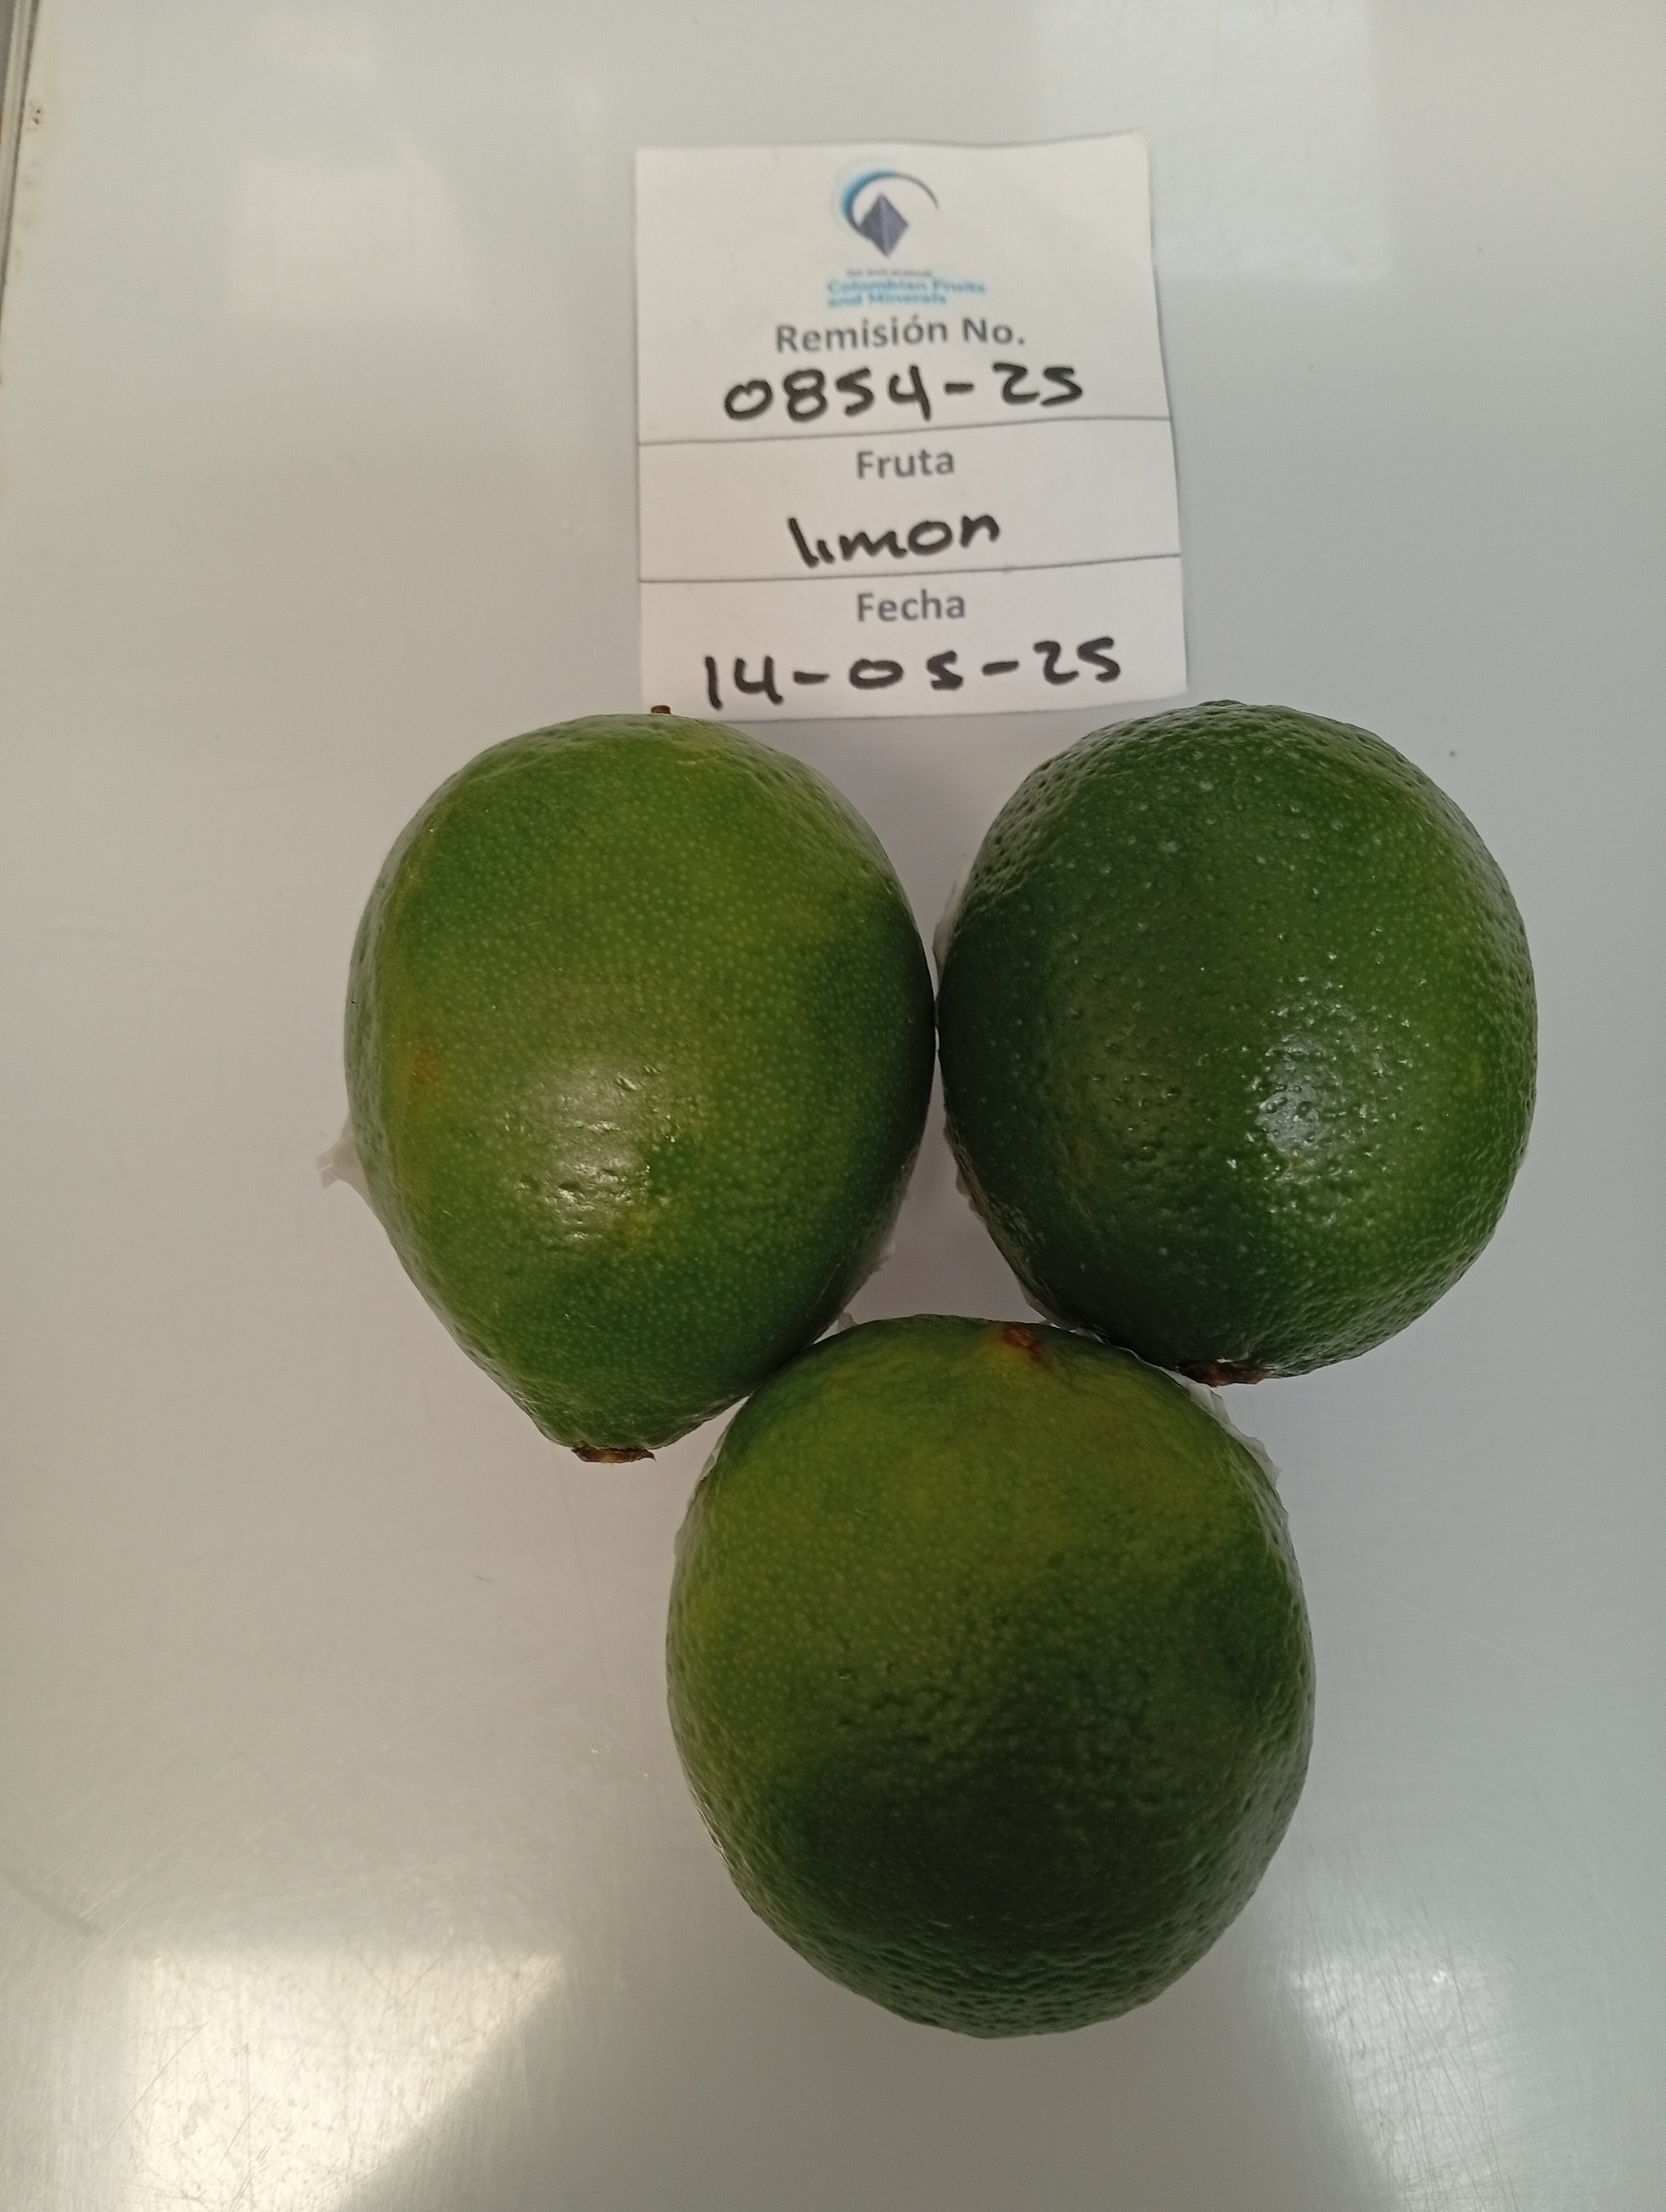 Colombian Fruits
and Minerals
Remisión No.
0854-25
Fruta
limon
Fecha
14-05-25